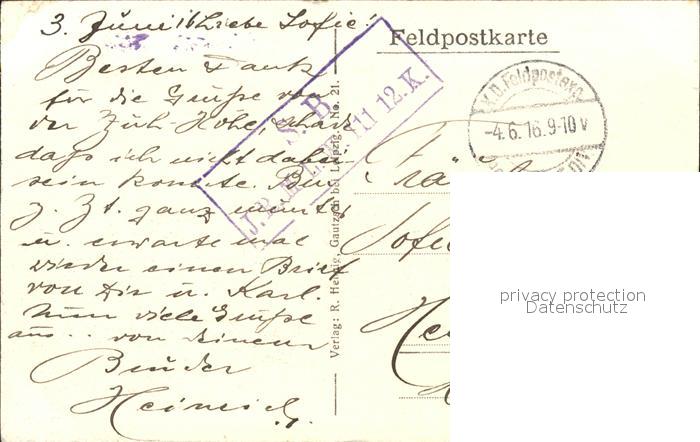 3. Juni 16 Liebe Sofie!
Besten Dank
für die Grüße von
der Hohe, schade
daß ich nicht dabei
sein konnte. Bin
z. Zt. ganz munter
u. erwarte mal
wieder einen Brief
von Dir u. Karl.
Nun viele Grüße
aus .. von deinem
Bruder
Heinrich.
Feldpostkarte
S. B.
J.R. 111 12.K.
K.D. Feldpostexp.
-4.6.16.9-10 V
Verlag: R. Herbig, Gautzsch bei Leipzig. No. 21.
Sofie
privacy protection
Datenschutz